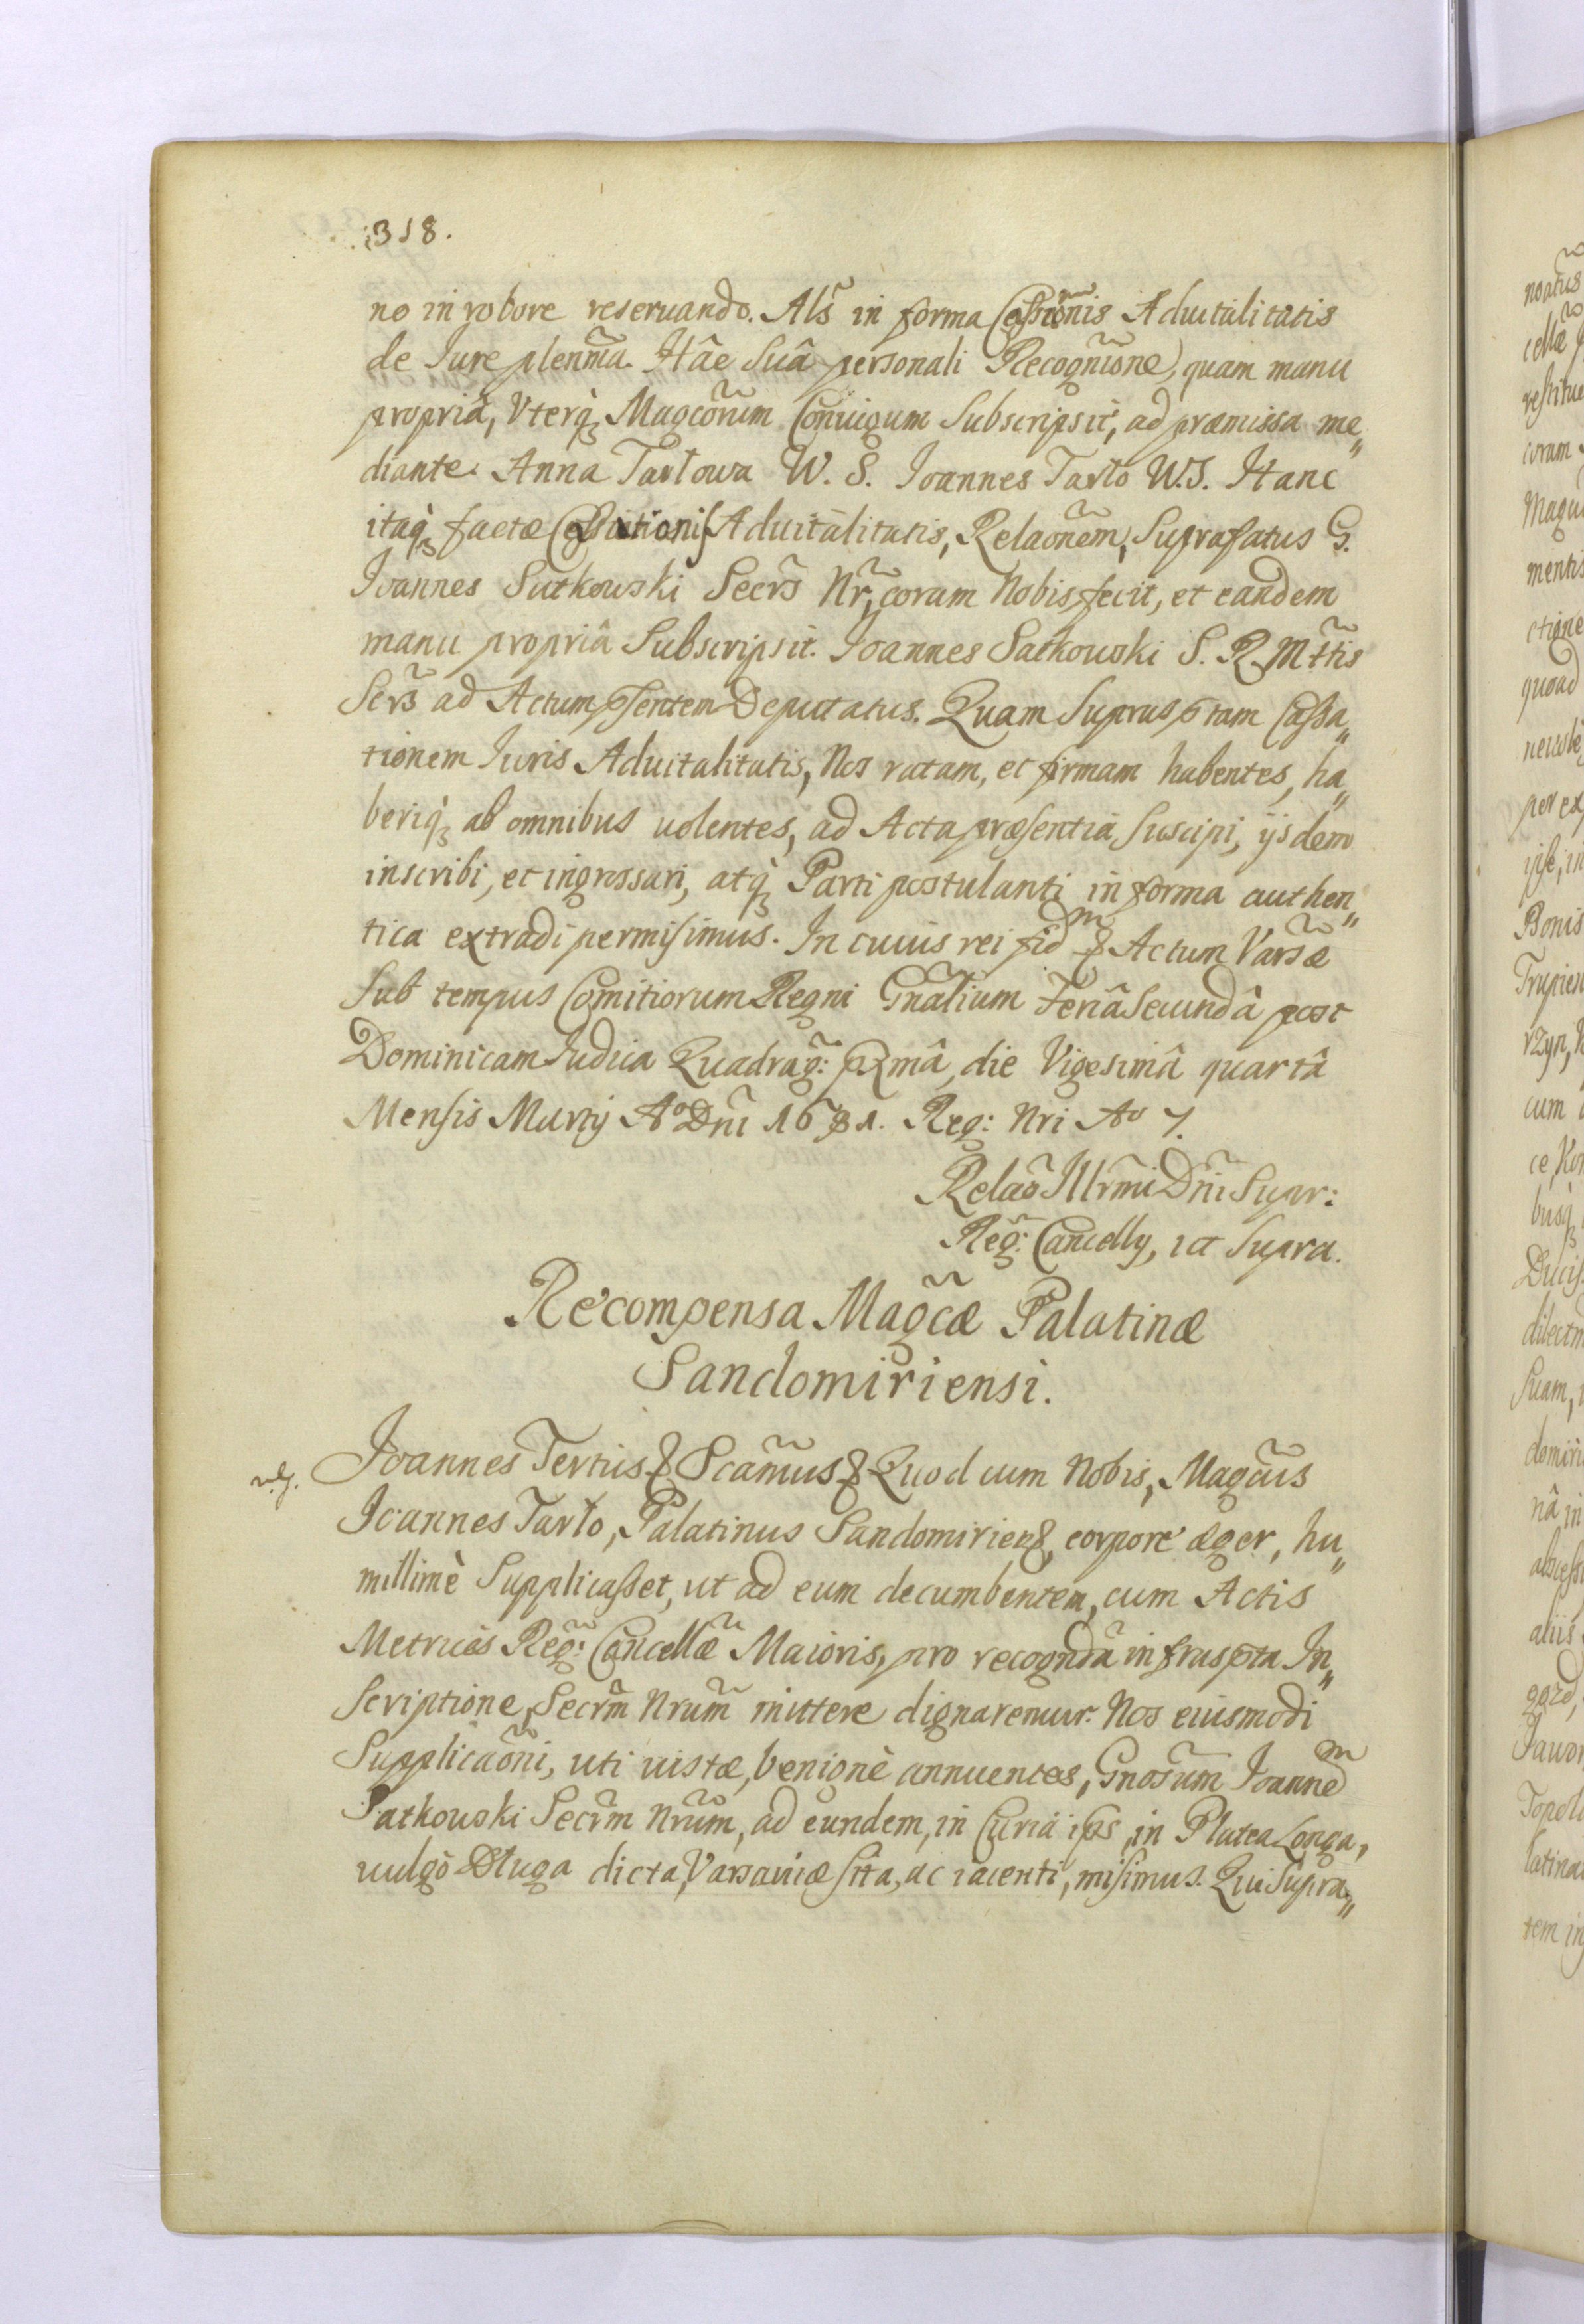 318.
no in robore reseruando. Als̃ in forma Cessionis Aduitalitatis
de Iure plenm̃a. Hâc Suâ personali Recognĩone, quam manu
propriâ, Vterq̀ Magcõrum Coniugum Subscripsit, ad præmissa me„
diante. Anna Tarłowa W. S. Joannes Tarło W. S. Hanc
itaq̀ factæ Aduitalitatis, Relaõnem, Suprafatus G.
Joannes Sutkowski Secrs̃ Nr̃, coram Nobis fecit, et eandem
manu propriâ Subscripsit. Joannes Satkowski S. R. Mttis̃
Sers̃ ad Actum pñtem Deputatus. Quam Suprasptam Cassa„
tionem Iuris Aduitalitatis, Nos ratam, et firmam habentes, ha„
beriq̀ ab omnibus uolentes, ad Acta præsentia Suscipi, ijsdem
inscribi, et ingrossari, atq̀ Parti postulanti in forma authen„
tica extradi permisimus. In cuius rei fidm & Actum Varsæ
Sub tempus Comitiorum Regni Gñalium Feriâ Secundâ post
Dominicam Iudica Quadrag: pxmâ, die Vigesimâ quartâ
Mensis Martij Aº Dnĩ 1681. Reg: Nri Aº 7.
Relaõ Illrm̃i Dñi Supr:
Reg: Cancellÿ, ut Supra.
Recompensa Magcæ̃ Palatinæ
Sandomiriensi.
Joannes Tertius & Scam̃us & Quod cum Nobis, Magcus̃
Joannes Tarło, Palatinus Sandomirien&, corpore æger, hu„
millimè Supplicasset, ut ad eum decumbentem, cum Actis
Metrices Reg: Cancellæ̃ Maioris, pro recognda infraspta In„
Scriptione, Secrm̃ Nrum̃ mittere dignaremur. Nos eiusmodi
Supplicaõni, uti iustæ, benignè annuentes, Gnosum̃ Joannem
Satkouski Secrm̃ Nrum̃, ad eundem, in Curia ips, in Platea Longa,
uulgò Długa dicta, Varsauiæ sita, ac iacenti, misimus. Qui Supra„